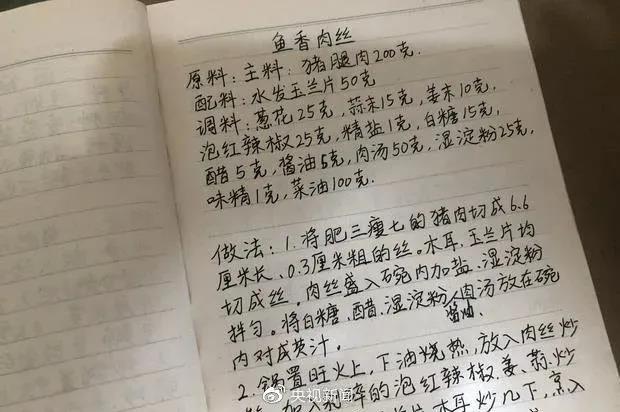 鱼香肉丝
原料:主料:猪腿肉200克.
配料:水发玉兰片50克
调料:葱花25克,蒜末15克,姜末10克,
泡红辣椒25克,精盐1克,白糖15克,
醋5克,酱油5克,肉汤50克,湿淀粉25克,
味精1克,菜油100克.
做法:1.将肥三瘦七的猪肉切成6.6
厘米长、0.3厘米粗的丝。木耳、玉兰片均
切成丝。肉丝盛入碗内加盐、湿淀粉
拌匀。将白糖、醋、湿淀粉、酱油、肉汤放在碗
内对成芡汁。
2.锅置旺火上,下油烧热,放入肉丝炒
加入 碎的泡红辣椒、姜、蒜炒
木耳炒几下,烹入
央视新闻